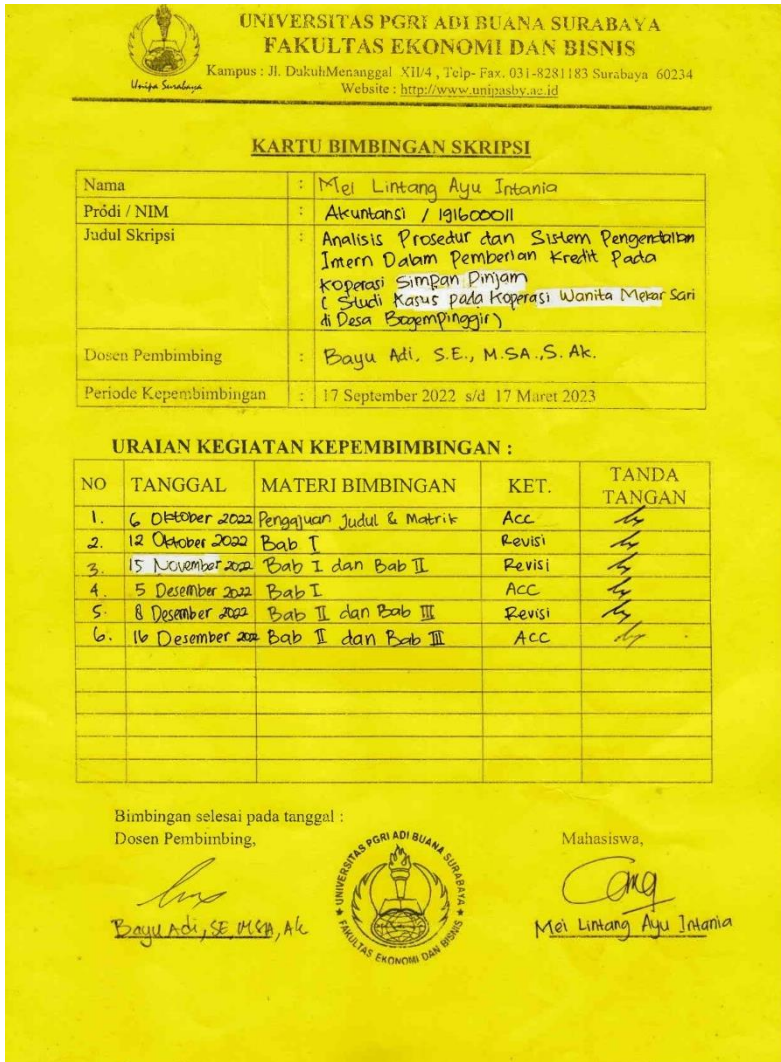 UNIVERSITAS PGRI ADI BUANA SURABAYA
FAKULTAS EKONOMI DAN BISNIS
Kampus : Jl. DukuhMenanggal XII/4 , Telp- Fax. 031-8281183 Surabaya 60234
Website : http://www.unipasby.ac.id
Unipa Surabaya
KARTU BIMBINGAN SKRIPSI
Nama : Mei Lintang Ayu Intania
Prodi / NIM : Akuntansi / 191600011
Judul Skripsi : Analisis Prosedur dan Sistem Pengendalian
Intern Dalam Pemberian Kredit Pada
Koperasi Simpan Pinjam
( Studi Kasus pada Koperasi Wanita Mekar Sari
di Desa Bogempinggir)
Dosen Pembimbing : Bayu Adi, S.E., M.SA.,S. Ak.
Periode Kepembimbingan : 17 September 2022 s/d 17 Maret 2023
URAIAN KEGIATAN KEPEMBIMBINGAN :
NO TANGGAL MATERI BIMBINGAN KET. TANDA TANGAN
1. 6 Oktober 2022 Pengajuan Judul & Matrik Acc
2. 12 Oktober 2022 Bab I Revisi
3. 15 November 2022 Bab I dan Bab II Revisi
4. 5 Desember 2022 Bab I ACC
5. 8 Desember 2022 Bab II dan Bab III Revisi
6. 16 Desember 202 Bab II dan Bab III ACC
Bimbingan selesai pada tanggal :
Dosen Pembimbing, Mahasiswa,
UNIVERSITAS PGRI ADI BUANA SURABAYA
FAKULTAS EKONOMI DAN BISNIS
Bayu Adi, SE, MSA, Ak Mei Lintang Ayu Intania